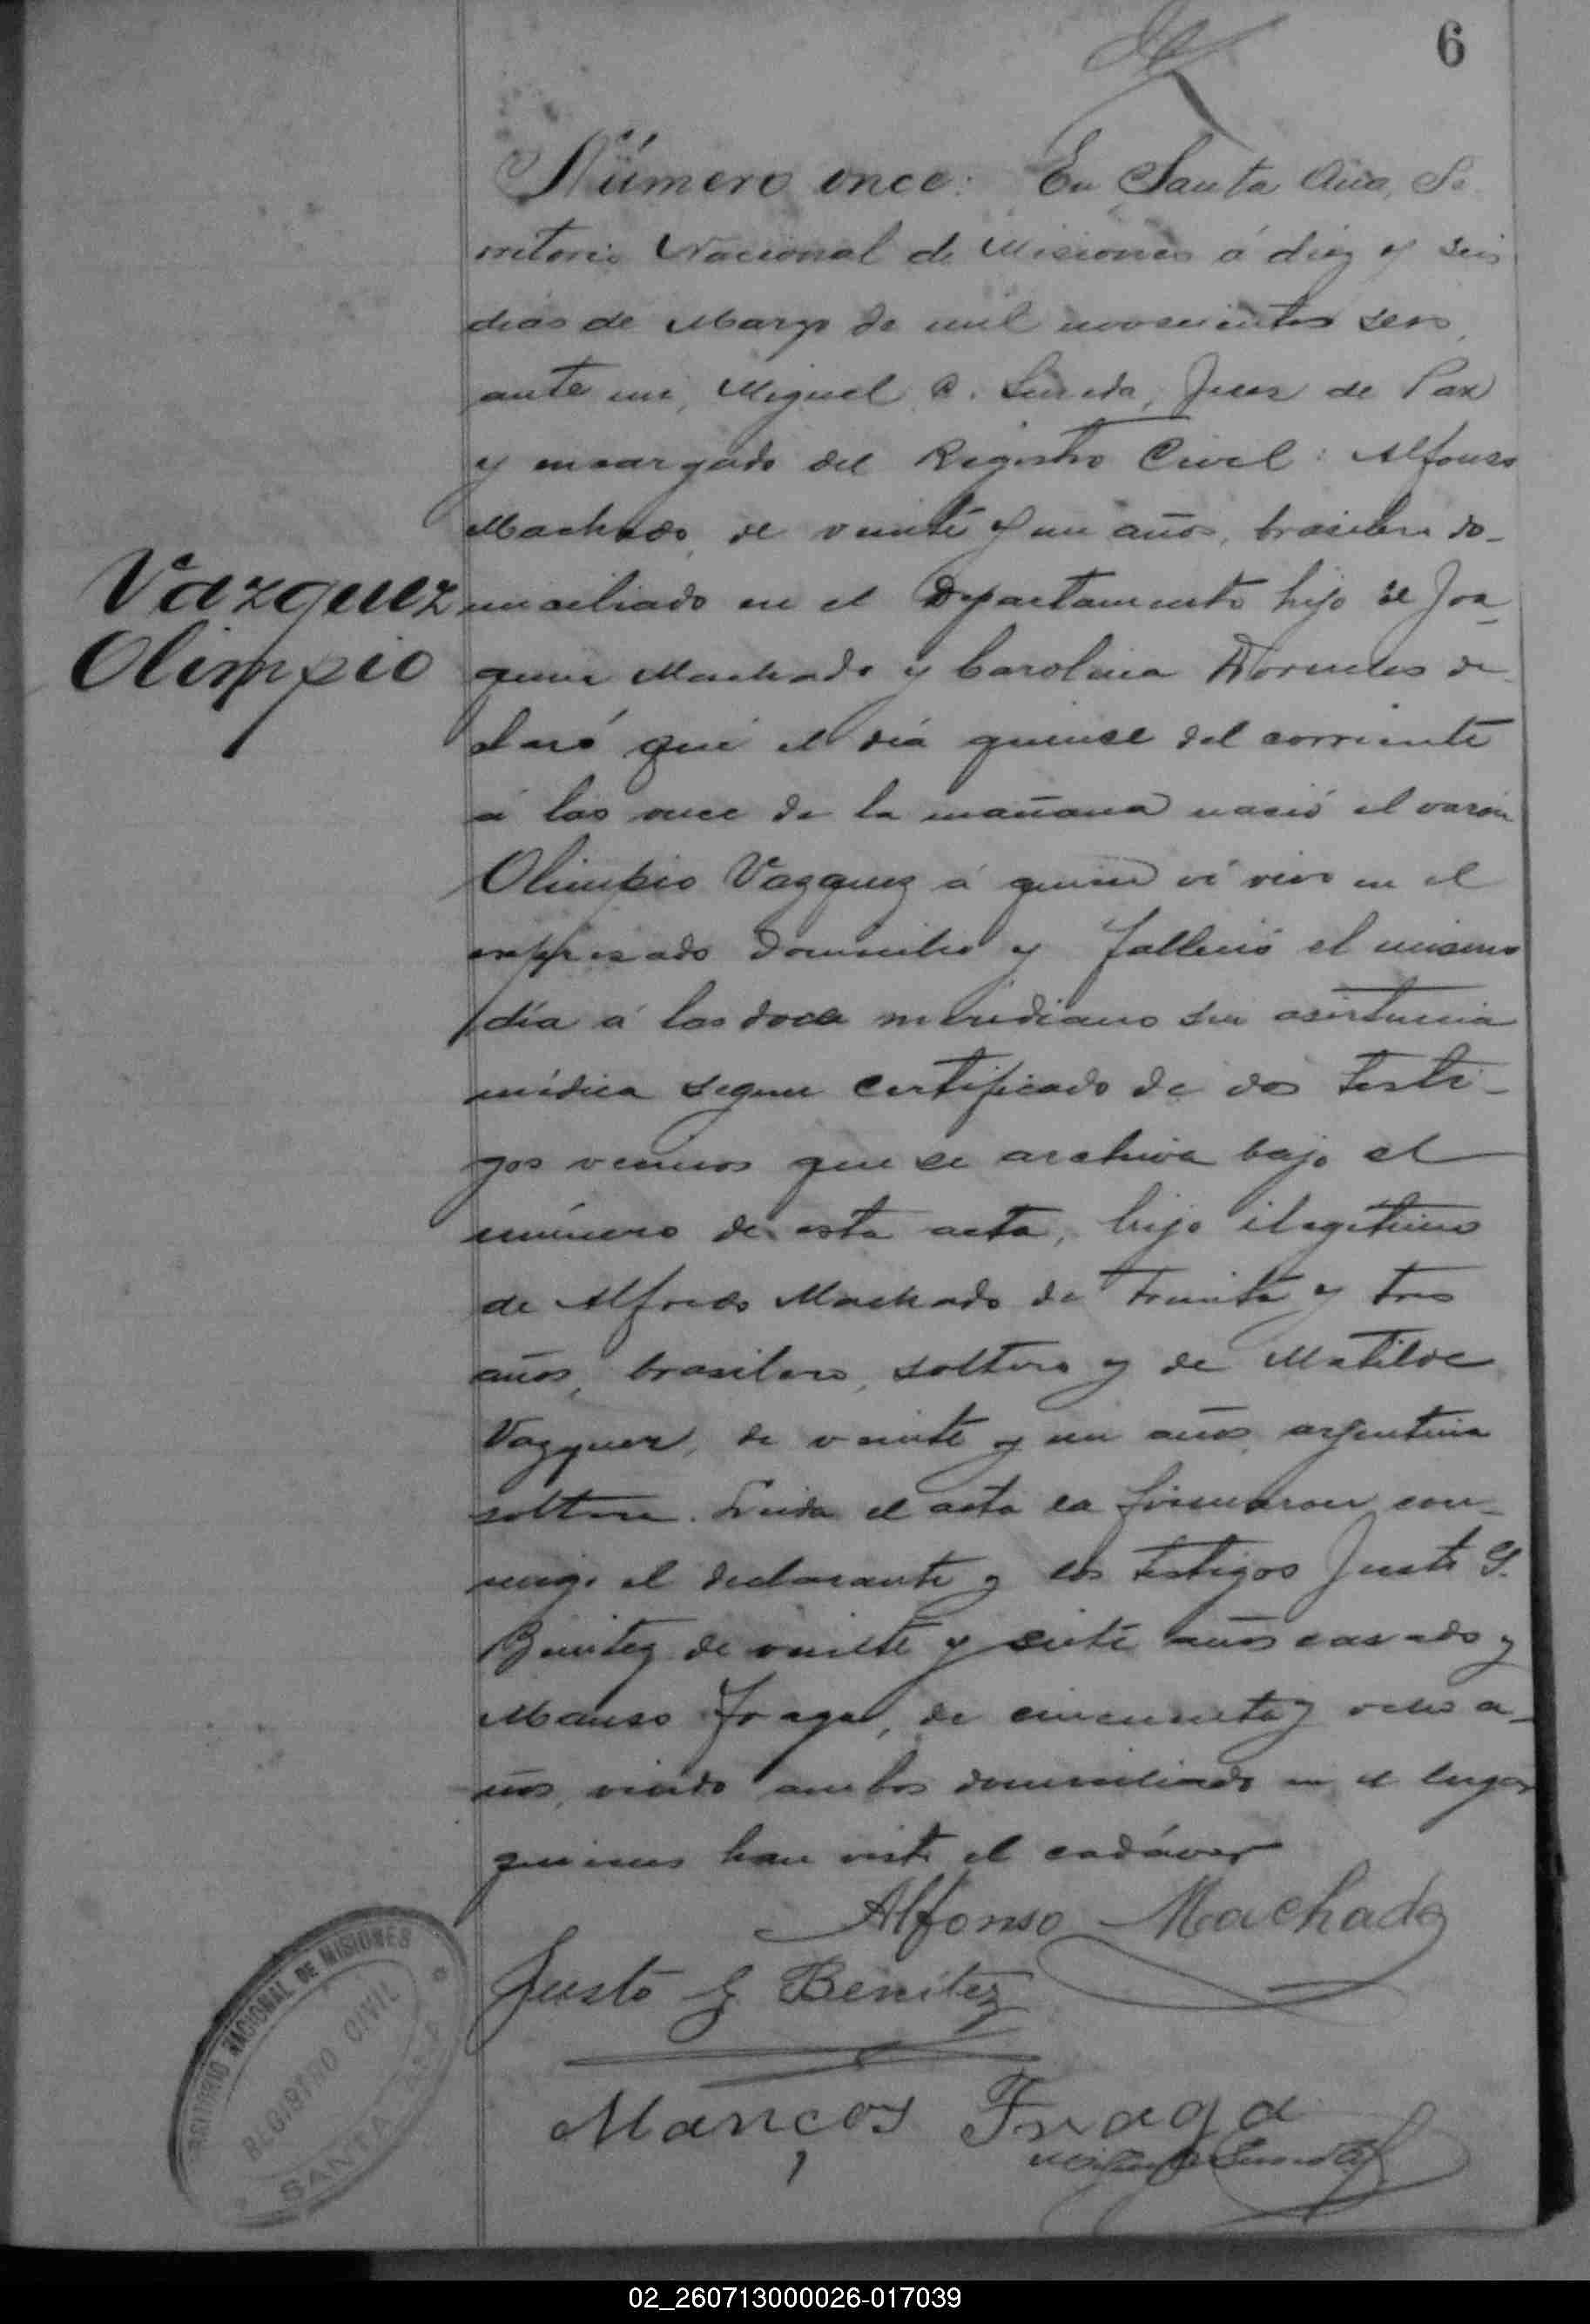 6
Número once: En Santa Ana, Te
rritorio Nacional de Misiones á diez y seis
dias de Marzo de mil novecientos seis,
ante mi, Miguel Juez de Paz
y encargado del Registro Civil: Alfonso
Machado, de veinte y un años, brasilero do-
Vazquez
Olimpio
miciliado en el Departamento hijo de Joa
quin Machado y Carolina Dorneles de
claró que el día quince del corriente
á las once de la mañana nació el varón
Olimpio Vazquez á quien ví vivo en el
expresado domicilio y falleció el mismo
día á las doce meridiano sin asistencia
médica segun certificado de dos testi-
gos vecinos que se archiva bajo el
número de esta acta, hijo ilegitimo
de Alfredo Machado de treinta y tres
años, brasilero, soltero y de Matilde
Vazquez, de veinte y un años, argentina
soltera. Leida el acta la firmaron con-
migo el declarante y los testigos Justo G.
Benitez de veinte y siete años casado y
Fraga, de cincuenta y ocho a-
ños, viudo ambos domiciliado en el lugar
quienes han visto el cadáver
Alfonso Machado
Justo G. Benitez
Marcos Fraga
TERRITORIO NACIONAL DE MISIONES
REGISTRO CIVIL
SANTA ANA
02_260713000026-017039